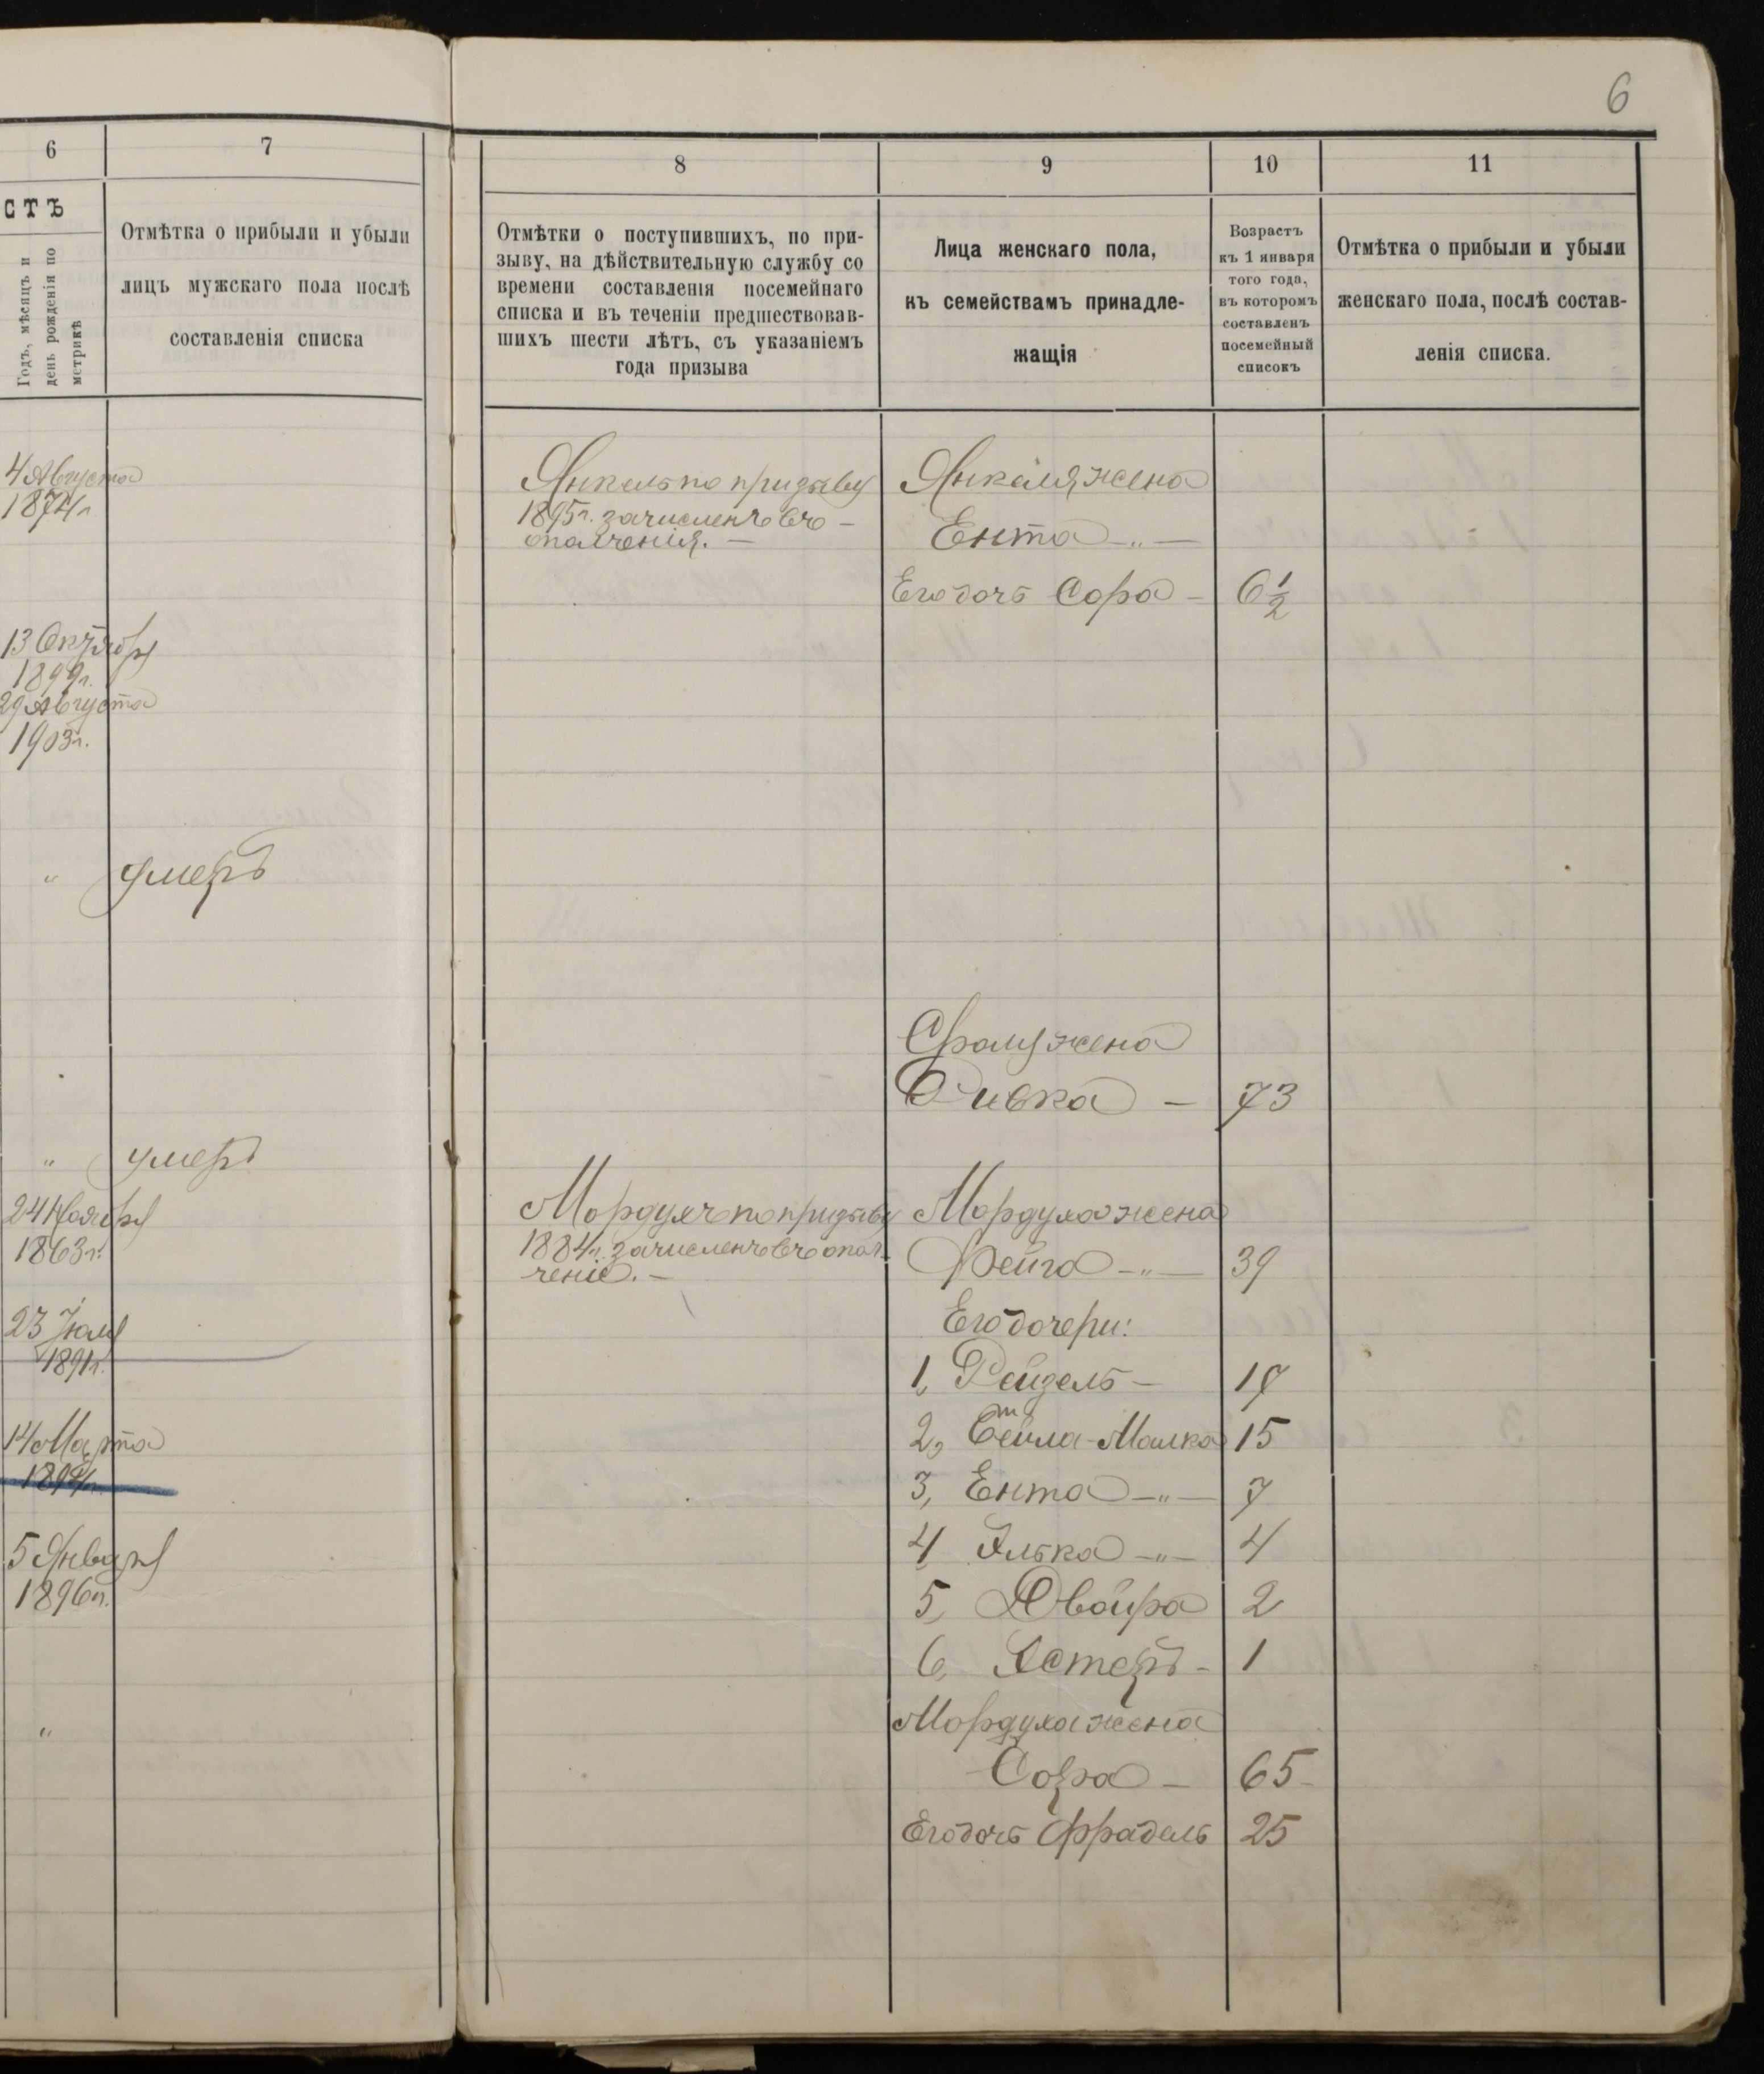 6
6
7
СТЪ
Годъ, мѣсяцъ и
день рожденія по
метрикѣ
Отмѣтка о прибыли и убыли
лицъ мужскаго пола послѣ
составленія списка
4 Августа
1874 г.
13 Октября
1899 г.
29 Августа
1903 г.
" умеръ
" умеръ
24 Ноября
1863 г.
23 Іюля
1891 г.
14 Марта
5 Января
1896 г.
"
8
9
10
11
Отмѣтки о поступившихъ, по при-
зыву, на дѣйствительную службу со
времени составленія посемейнаго
списка и въ теченіи предшествовав-
шихъ шести лѣтъ, съ указаніемъ
года призыва
Лица женскаго пола,
къ семействамъ принадле-
жащія
Возрастъ
къ 1 января
того года,
въ которомъ
составленъ
посемейный
списокъ
Отмѣтка о прибыли и убыли
женскаго пола, послѣ состав-
ленія списка.
Янкель по призыву
1895 г. зачисленъ въ –
ополченія. –
Янкеля жена
Ента – " –
Его дочь Сора – 6 1/2
Срома жена
Ривка – 73
Мордухъ по призыву
1884 г. зачисленъ въ опол-
ченіе. –
Мордуха жена
Фейга – " – 39
Его дочери:
1, Рейзель – 17
2, Малка 15
3, Ента – " – 7
4 Элька – " – 4
5, Двойра 2
6, Эстеръ – 1
Мордуха жена
Сора – 65 –
Его дочь Фрадель 25